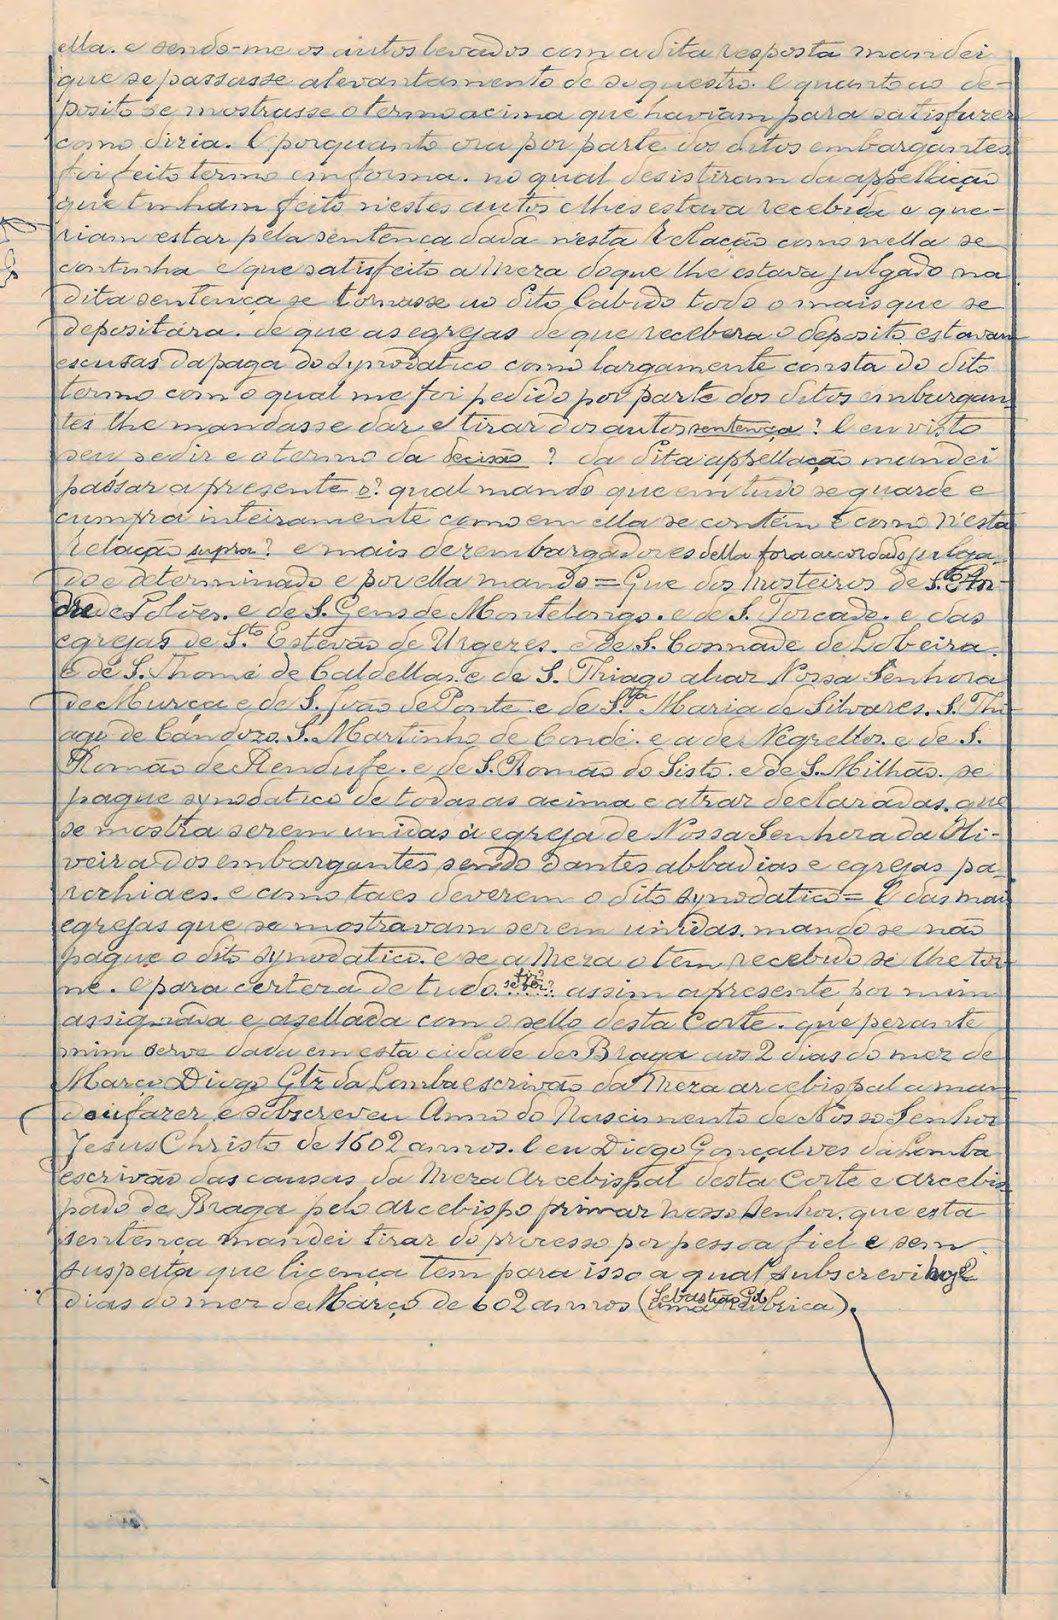 ella. e sendo-me os autos levados com a dita resposta mandei
que se passasse alevantamento de sequestro. E quanto ao de-
posito se mostrasse o termo acima que haviam para satisfazer
como diria. E porquanto ora por parte dos ditos embargantes
foi feito termo em forma. no qual desistiram da appellação
que tinham feito n'estes autos e lhes estava recebida e que-
riam estar pela sentença dada n'esta Relação como nella se
continha e que satisfeito a Meza do que lhe estava julgado na
dita sentença se tornasse ao dito Cabido todo o mais que se
depositára. de que as egrejas de que recebera o deposito estavam
escusas da paga do synodatico como largamente consta do dito
termo com o qual me foi pedido por parte dos ditos embargan-
tes lhe mandasse dar e tirar dos autos sentença? E eu visto
seu pedir e o termo da decisão? da dita appellação mandei
passar a presente o? qual mando que em tudo se guarde e
cumpra inteiramente como em ella se contém e como n'esta
Relação supra? e mais dezembargadores della fora accordado julga-
do e determinado e por ella mando = Que dos Mosteiros de S.to An-
dre de Polvor. e de S. Gens de Montelongo. e de S. Torcade. e das
egrejas de S.to Estevão de Urgezes. e de S. Cosmade de Lobeira.
e de S. Thomé de Caldellas. e de S. Thiago aliar Nossa Senhora
de Murça e de S. João de Ponte e de S.ta Maria de Silvares. S. Thi-
ago de Candozo. S. Martinho de Conde. e a de Negrellos. e de S.
Romão de Rendufe. e de S. Romão do Sisto. e de S. Milhão. se
pague synodatico de todas as acima e atraz declaradas. que
se mostra serem unidas á egreja de Nossa Senhora da Oli-
veira dos embargantes sendo dantes abbadias e egrejas pa-
rochiaes. e como taes deverem o dito synodatico = E das mais
egrejas que se mostravam serem unidas. mando se não
pague o dito synodatico. e se a Meza o tem recebido se lhe tor-
ne. E para certeza de tudo assim a presente por mim
assignada e asellada com o sello desta Corte. que perante
mim serve dada em esta cidade de Braga aos 2 dias do mez de
Março Diogo Glz da Lomba escrivão da Meza arcebispal a man-
dou fazer e sobscreveu Anno do Nascimento de Nosso Senhor
Jesus Christo de 1602 annos. E eu Diogo Gonçalves da Lomba
escrivão das causas da Meza Arcebispal desta Corte e arcebis-
pado de Braga pelo arcebispo primaz nosso senhor. que esta
sentença mandei tirar do processo por pessoa fiel e sem
suspeita que licença tem para isso a qual subscrevi hoje 2
dias do mez de Março de 602 annos (Sebastião Gil
uma rubrica).